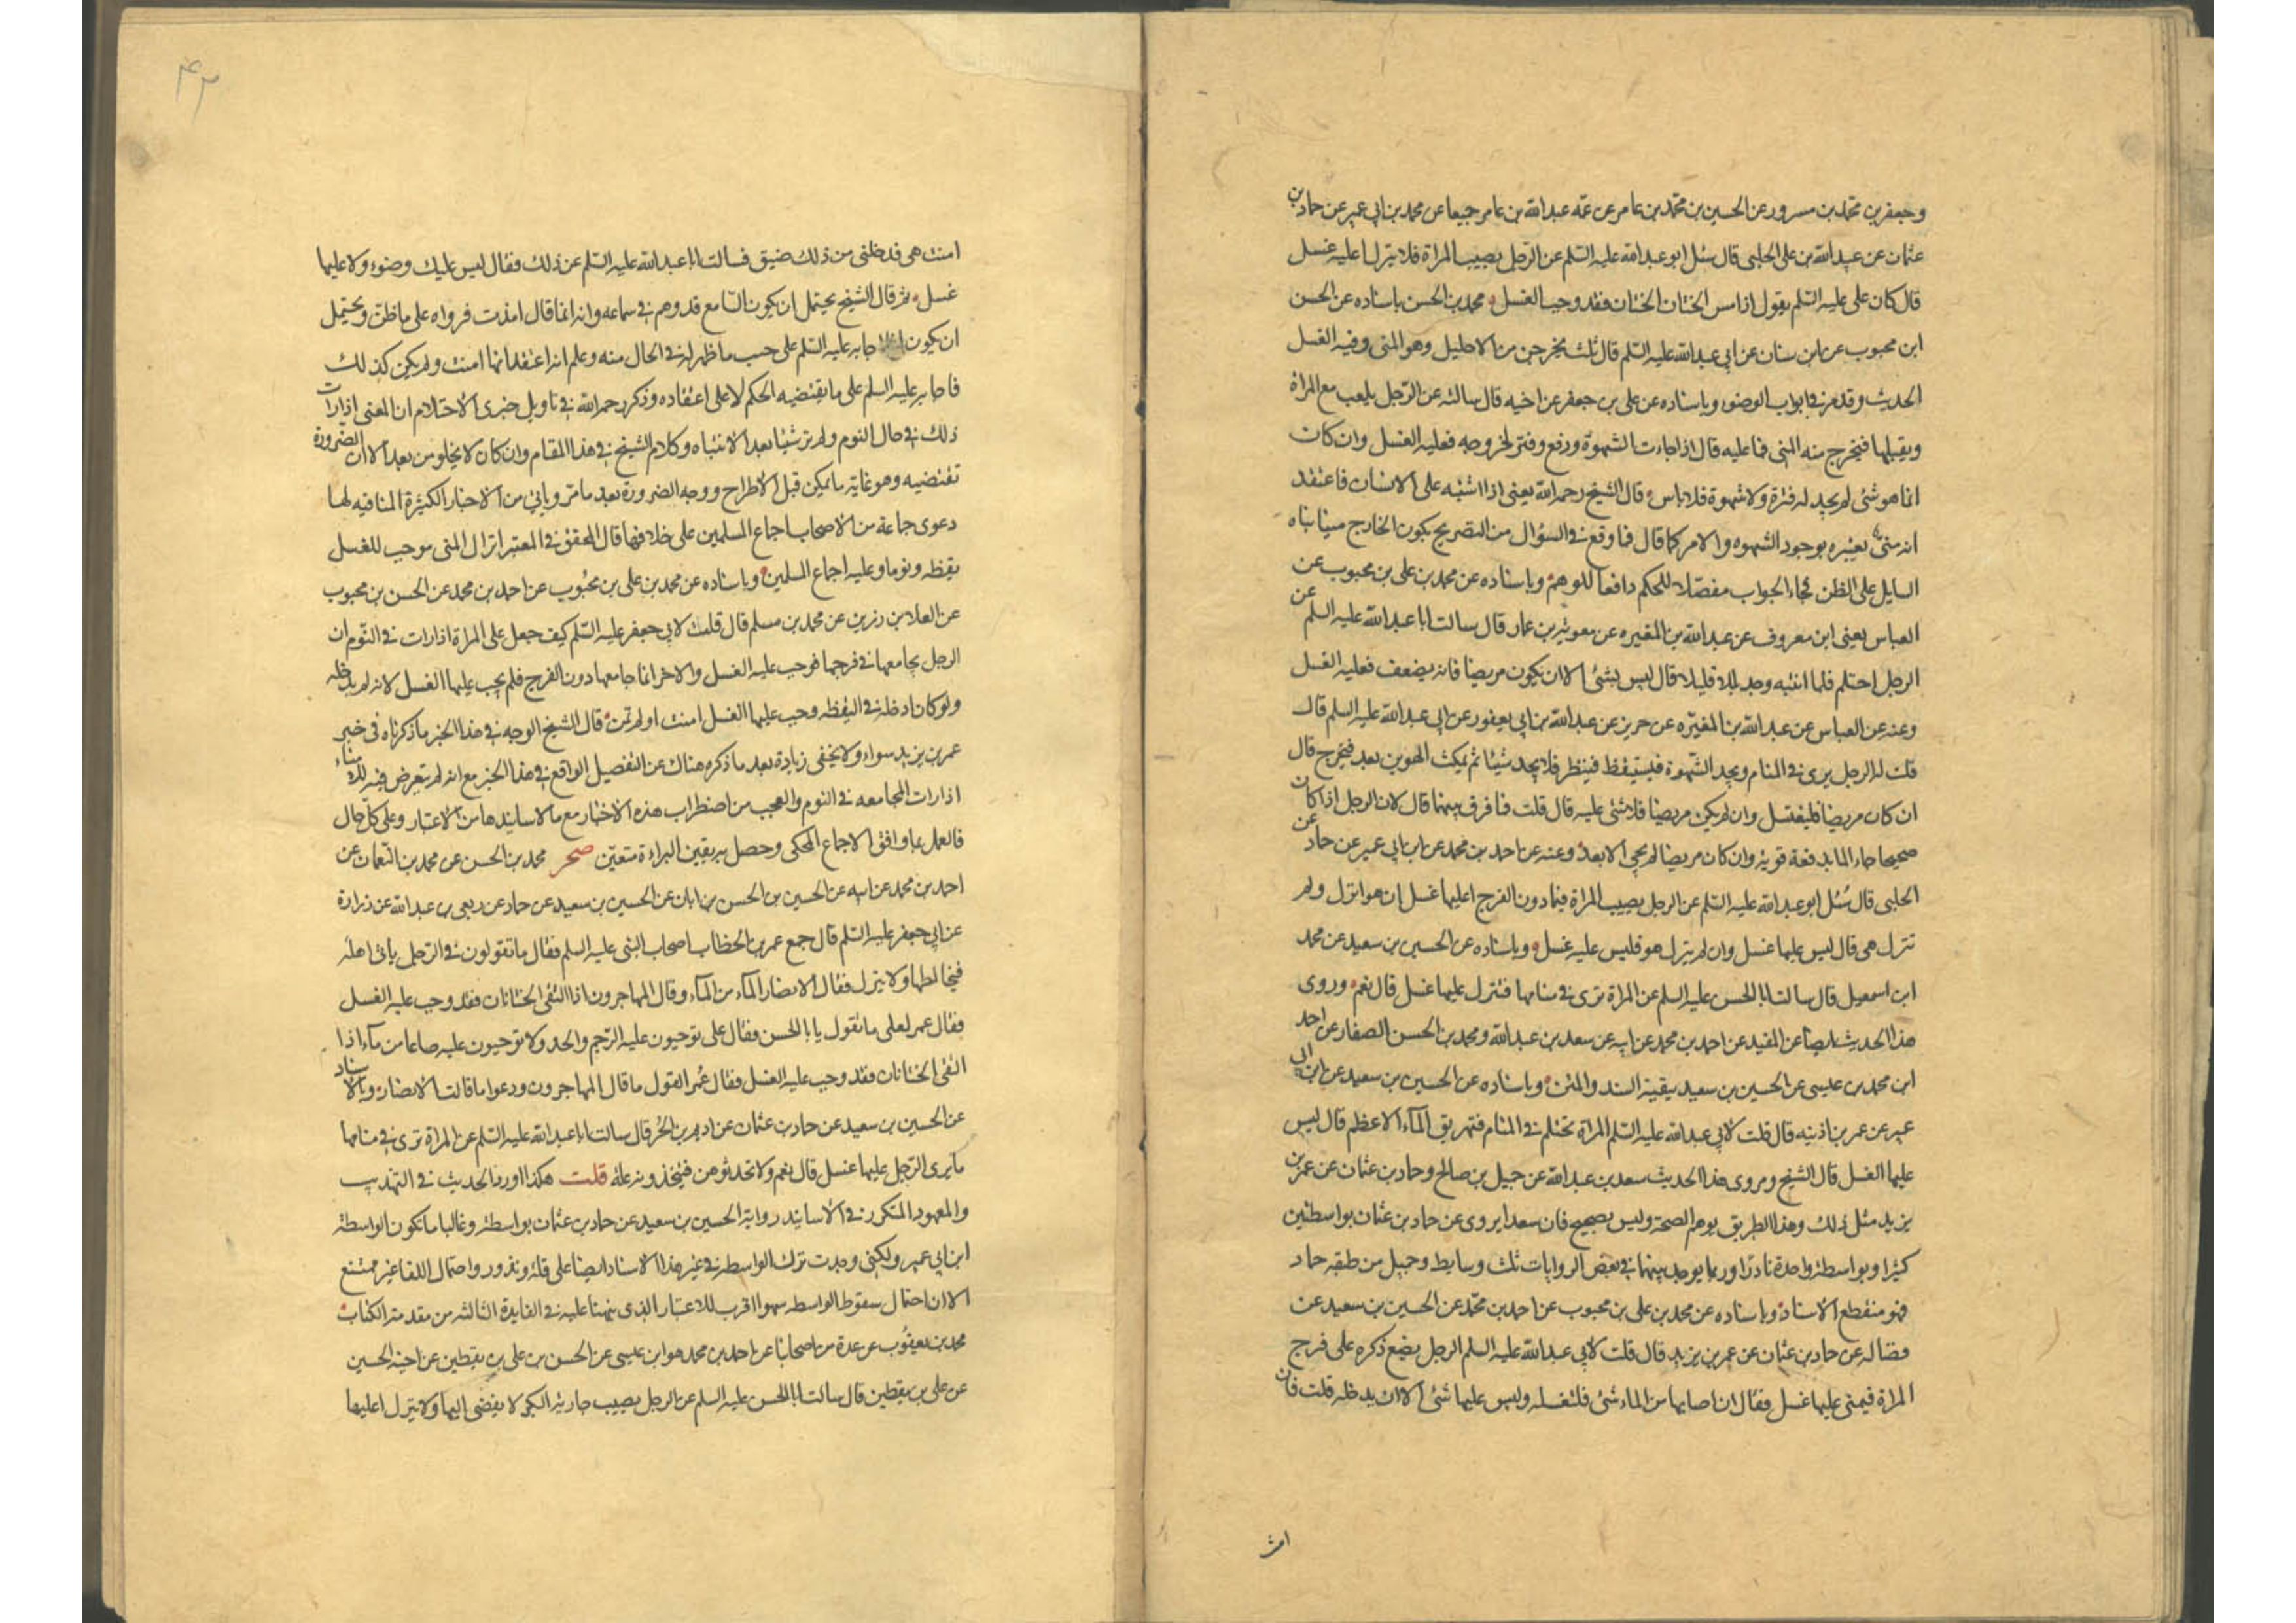 وجعفر بن محمد بن مسرور عن الحسين بن محمد بن عامر عن عمه عبدالله بن عامر جميعا عن محمد بن ابي عمير عن حماد بن
عثمان عن عبيدالله بن علي الحلبي قال سئل ابو عبدالله عليه السلم عن الرجل يصيب المراة فلا ينزل اعليه غسل
قال كان علي عليه السلم يقول اذا مس الختان الختان فقد وجب الغسل محمد بن الحسن باسناده عن الحسن
ابن محبوب عن ابن سنان عن ابي عبدالله عليه السلم قال ثلث يخرجن من الاحليل وهو المني وفيه الغسل
الحديث وقد مر في ابواب الوضوء وباسناده عن علي بن جعفر عن اخيه قال سالته عن الرجل يلعب مع المراة
ويقبلها فيخرج منه المني فما عليه قال اذا جاءت الشهوة ودفع وفتر لخروجه فعليه الغسل وان كان
انما هو شئ لم يجد له فترة ولا شهوة فلا باس قال الشيخ رحمه الله يعني اذا اشتبه على الانسان فاعتقد
انه مني يعتبره بوجود الشهوه والامر كما قال فما وقع في السؤال من التصريح بكون الخارج منيا بناه
السايل على الظن فجاء الجواب مفصلا للحكم دافعا للوهم وباسناده عن محمد بن علي بن محبوب عن
العباس يعني ابن معروف عن عبدالله بن المغيره عن معوية بن عمار قال سالت ابا عبدالله عليه السلم عن
الرجل احتلم فلما انتبه وجد بللا قليلا قال ليس بشئ الا ان يكون مريضا فانه يضعف فعليه الغسل
وعنه عن العباس عن عبدالله بن المغيره عن حريز عن عبدالله بن ابي يعفور عن ابي عبدالله عليه السلم قال
قلت له الرجل يرى في المنام ويجد الشهوة فيستيقظ فينظر فلا يجد شيئا ثم يمكث الهوين بعد فيخرج قال
ان كان مريضا فليغتسل وان لم يكن مريضا فلا شئ عليه قال قلت فما فرق بينهما قال لان الرجل اذا كان
صحيحا جاء الماء بدفعة قوية وان كان مريضا لم يجئ الا بعد وعنه عن احمد بن محمد عن ابن ابي عمير عن حماد عن
الحلبي قال سُئل ابو عبدالله عليه السلم عن الرجل يصيب المراة فيما دون الفرج اعليها غسل ان هو انزل ولم
تنزل هي قال ليس عليها غسل وان لم ينزل هو فليس عليه غسل وباسناده عن الحسين بن سعيد عن محمد
ابن اسمعيل قال سالت ابا الحسن عليه السلم عن المراة ترى في منامها فتنزل عليها غسل قال نعم وروى
هذا الحديث ايضا عن المفيد عن احمد بن محمد عن ابيه عن سعد بن عبدالله ومحمد بن الحسن الصفار عن احمد
ابن محمد بن عيسى عن الحسين بن سعيد ببقية السند والمتن وباسناده عن الحسين بن سعيد عن ابن ابي
عمير عن عمر بن اذينه قال قلت لابي عبدالله عليه السلم المراة تحتلم في المنام فتهريق الماء الاعظم قال ليس
عليها الغسل قال الشيخ وروى هذا الحديث سعد بن عبدالله عن جميل بن صالح وحماد بن عثمان عن عمر بن
يزيد مثل ذلك وهذا الطريق يوهم الصحة وليس بصحيح فان سعدا يروى عن حماد بن عثمان بواسطتين
كثيرا وبواسطة واحدة نادرا وربما يوجد بينهما في بعض الروايات ثلث وسايط وجميل من طبقه حماد
فهو منقطع الاسناد وباسناده عن محمد بن علي بن محبوب عن احمد بن محمد عن الحسين بن سعيد عن
فضاله عن حماد بن عثمان عن عمر بن يزيد قال قلت لابي عبدالله عليه السلم الرجل يضع ذكره على فرج
المراة فيمني عليها غسل فقال ان اصابها من الماء شئ فلتغسله وليس عليها شئ الا ان يدخله قلت فان
امنت هي قد دخلني من ذلك ضيق فسالت ابا عبدالله عليه السلم عن ذلك فقال ليس عليك وضوء ولا عليها
غسل ثم قال الشيخ يحتمل ان يكون السامع قد وهم في سماعه وانه انما قال امذت فرواه على ما ظن ويحتمل
ان يكون انما اجابه عليه السلم على حسب ما ظهر له في الحال منه وعلم انه اعتقد انها امنت ولم يكن كذلك
فاجابه عليه السلم على ما يقتضيه الحكم لا على اعتقاده وذكر رحمه الله في تاويل خبرى الاحتلام ان المعنى اذا رات
ذلك في حال النوم ولم تر شيئا بعد الانتباه وكلام الشيخ في هذا المقام وان كان لا يخلو من بعد الا ان الضرورة
تقتضيه وهو غاية ما يمكن قبل الاطراح ووجه الضرورة بعد ما مر وياتي من الاخبار الكثيرة المنافيه لها
دعوى جماعة من الاصحاب اجماع المسلمين على خلافها قال المحقق في المعتبر انزال المني موجب للغسل
يقظه ونوما وعليه اجماع المسلمين وباسناده عن محمد بن علي بن محبوب عن احمد بن محمد عن الحسن بن محبوب
عن العلا بن رزين عن محمد بن مسلم قال قلت لابي جعفر عليه السلم كيف جعل على المراة اذا رات في النوم ان
الرجل يجامعها في فرجها فوجب عليه الغسل والاخر انما جامعها دون الفرج فلم يجب عليها الغسل لانه لم يدخله
ولو كان ادخله في اليقظه وجب عليها الغسل امنت او لم تمن قال الشيخ الوجه في هذا الخبر ما ذكرناه في خبر
عمر بن يزيد سواء ولا يخفى زيادة بعد ما ذكره هناك عن التفصيل الواقع في هذا الخبر مع انه لم يتعرض فيه للامناء
اذا رات المجامعه في النوم والعجب من اضطراب هذه الاخبار مع ما لاسانيدها من الاعتبار وعلى كل حال
فالعمل بما وافق الاجماع المحكى وحصل به يقين البراءة متعين صحر محمد بن الحسن عن محمد بن النعمان عن
احمد بن محمد عن ابيه عن الحسين بن الحسن بن ابان عن الحسين بن سعيد عن حماد عن ربعي بن عبدالله عن زرارة
عن ابي جعفر عليه السلم قال جمع عمر بن الخطاب اصحاب النبي عليه السلم فقال ما تقولون في الرجل ياتي اهله
فيخالطها ولا ينزل فقال الانصار الماء من الماء وقال المهاجرون اذا التقى الختانان فقد وجب عليه الغسل
فقال عمر لعلي ما تقول يا ابا الحسن فقال علي توجبون عليه الرجم والحد ولا توجبون عليه صاعا من ماء اذا
التقى الختانان فقد وجب عليه الغسل فقال عمر القول ما قال المهاجرون ودعوا ما قالت الانصار وبالاسناد
عن الحسين بن سعيد عن حماد بن عثمان عن اديم بن الحر قال سالت ابا عبدالله عليه السلم عن المراة ترى في منامها
ما يرى الرجل عليها غسل قال نعم ولا تحدثوهن فيتخذونه علة قلت هكذا اورد الحديث في التهذيب
والمعهود المتكرر في الاسانيد رواية الحسين بن سعيد عن حماد بن عثمان بواسطة وغالبا ما تكون الواسطة
ابن ابي عمير ولكني وجدت ترك الواسطه في غير هذا الاسناد ايضا على قلة وندور واحتمال اللقا غير ممتنع
الا ان احتمال سقوط الواسطه سهوا اقرب للاعتبار الذى نبهنا عليه في الفايدة الثالثه من مقدمة الكتاب
محمد بن يعقوب عن عدة من اصحابنا عن احمد بن محمد هو ابن عيسى عن الحسن بن علي بن يقطين عن اخيه الحسين
عن علي بن يقطين قال سالت ابا الحسن عليه السلم عن الرجل يصيب جارية البكر لا يفضي اليها ولا ينزل اعليها